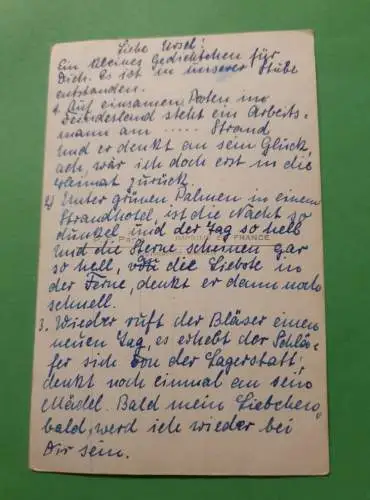 Liebe Ursel!
Ein kleines Gedichtchen für
Dich. Es ist in unserer Stube
entstanden.
1. Auf einsamen Posten im
Feindesland steht ein Arbeits-
mann am ..... Strand
Und er denkt an sein Glück,
ach, wär ich doch erst in die
Heimat zurück.
2) Unter grünen Palmen in einem
Strandhotel, ist die Nacht so
dunkel und der Tag so hell
FRANCE
Und die Sterne scheinen gar
so hell, die Liebste in
der Ferne, denkt er dann noch
schnell.
3. Wieder ruft der Bläser einen
neuen Tag, es erhebt der Schlä-
fer sich von der Lagerstatt!
denkt noch einmal an sein
Mädel. Bald mein Liebchen
bald, werd ich wieder bei
Dir sein.